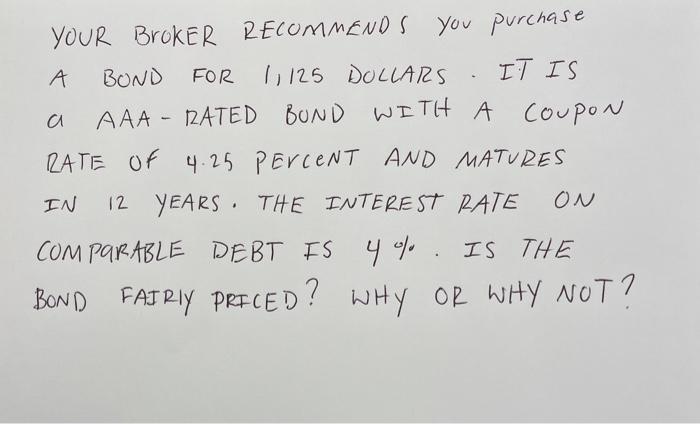 YOUR BROKER RECOMMENDS you purchase
A BOND FOR 1,125 DOLLARS. IT IS
a AAA-RATED BOND WITH A COUPON
RATE OF 4.25 PERCENT AND MATURES
IN 12 YEARS. THE INTEREST RATE ON
COMPARABLE DEBT IS 4%. IS THE
BOND FAIRLY PRICED? WHY OR WHY NOT?